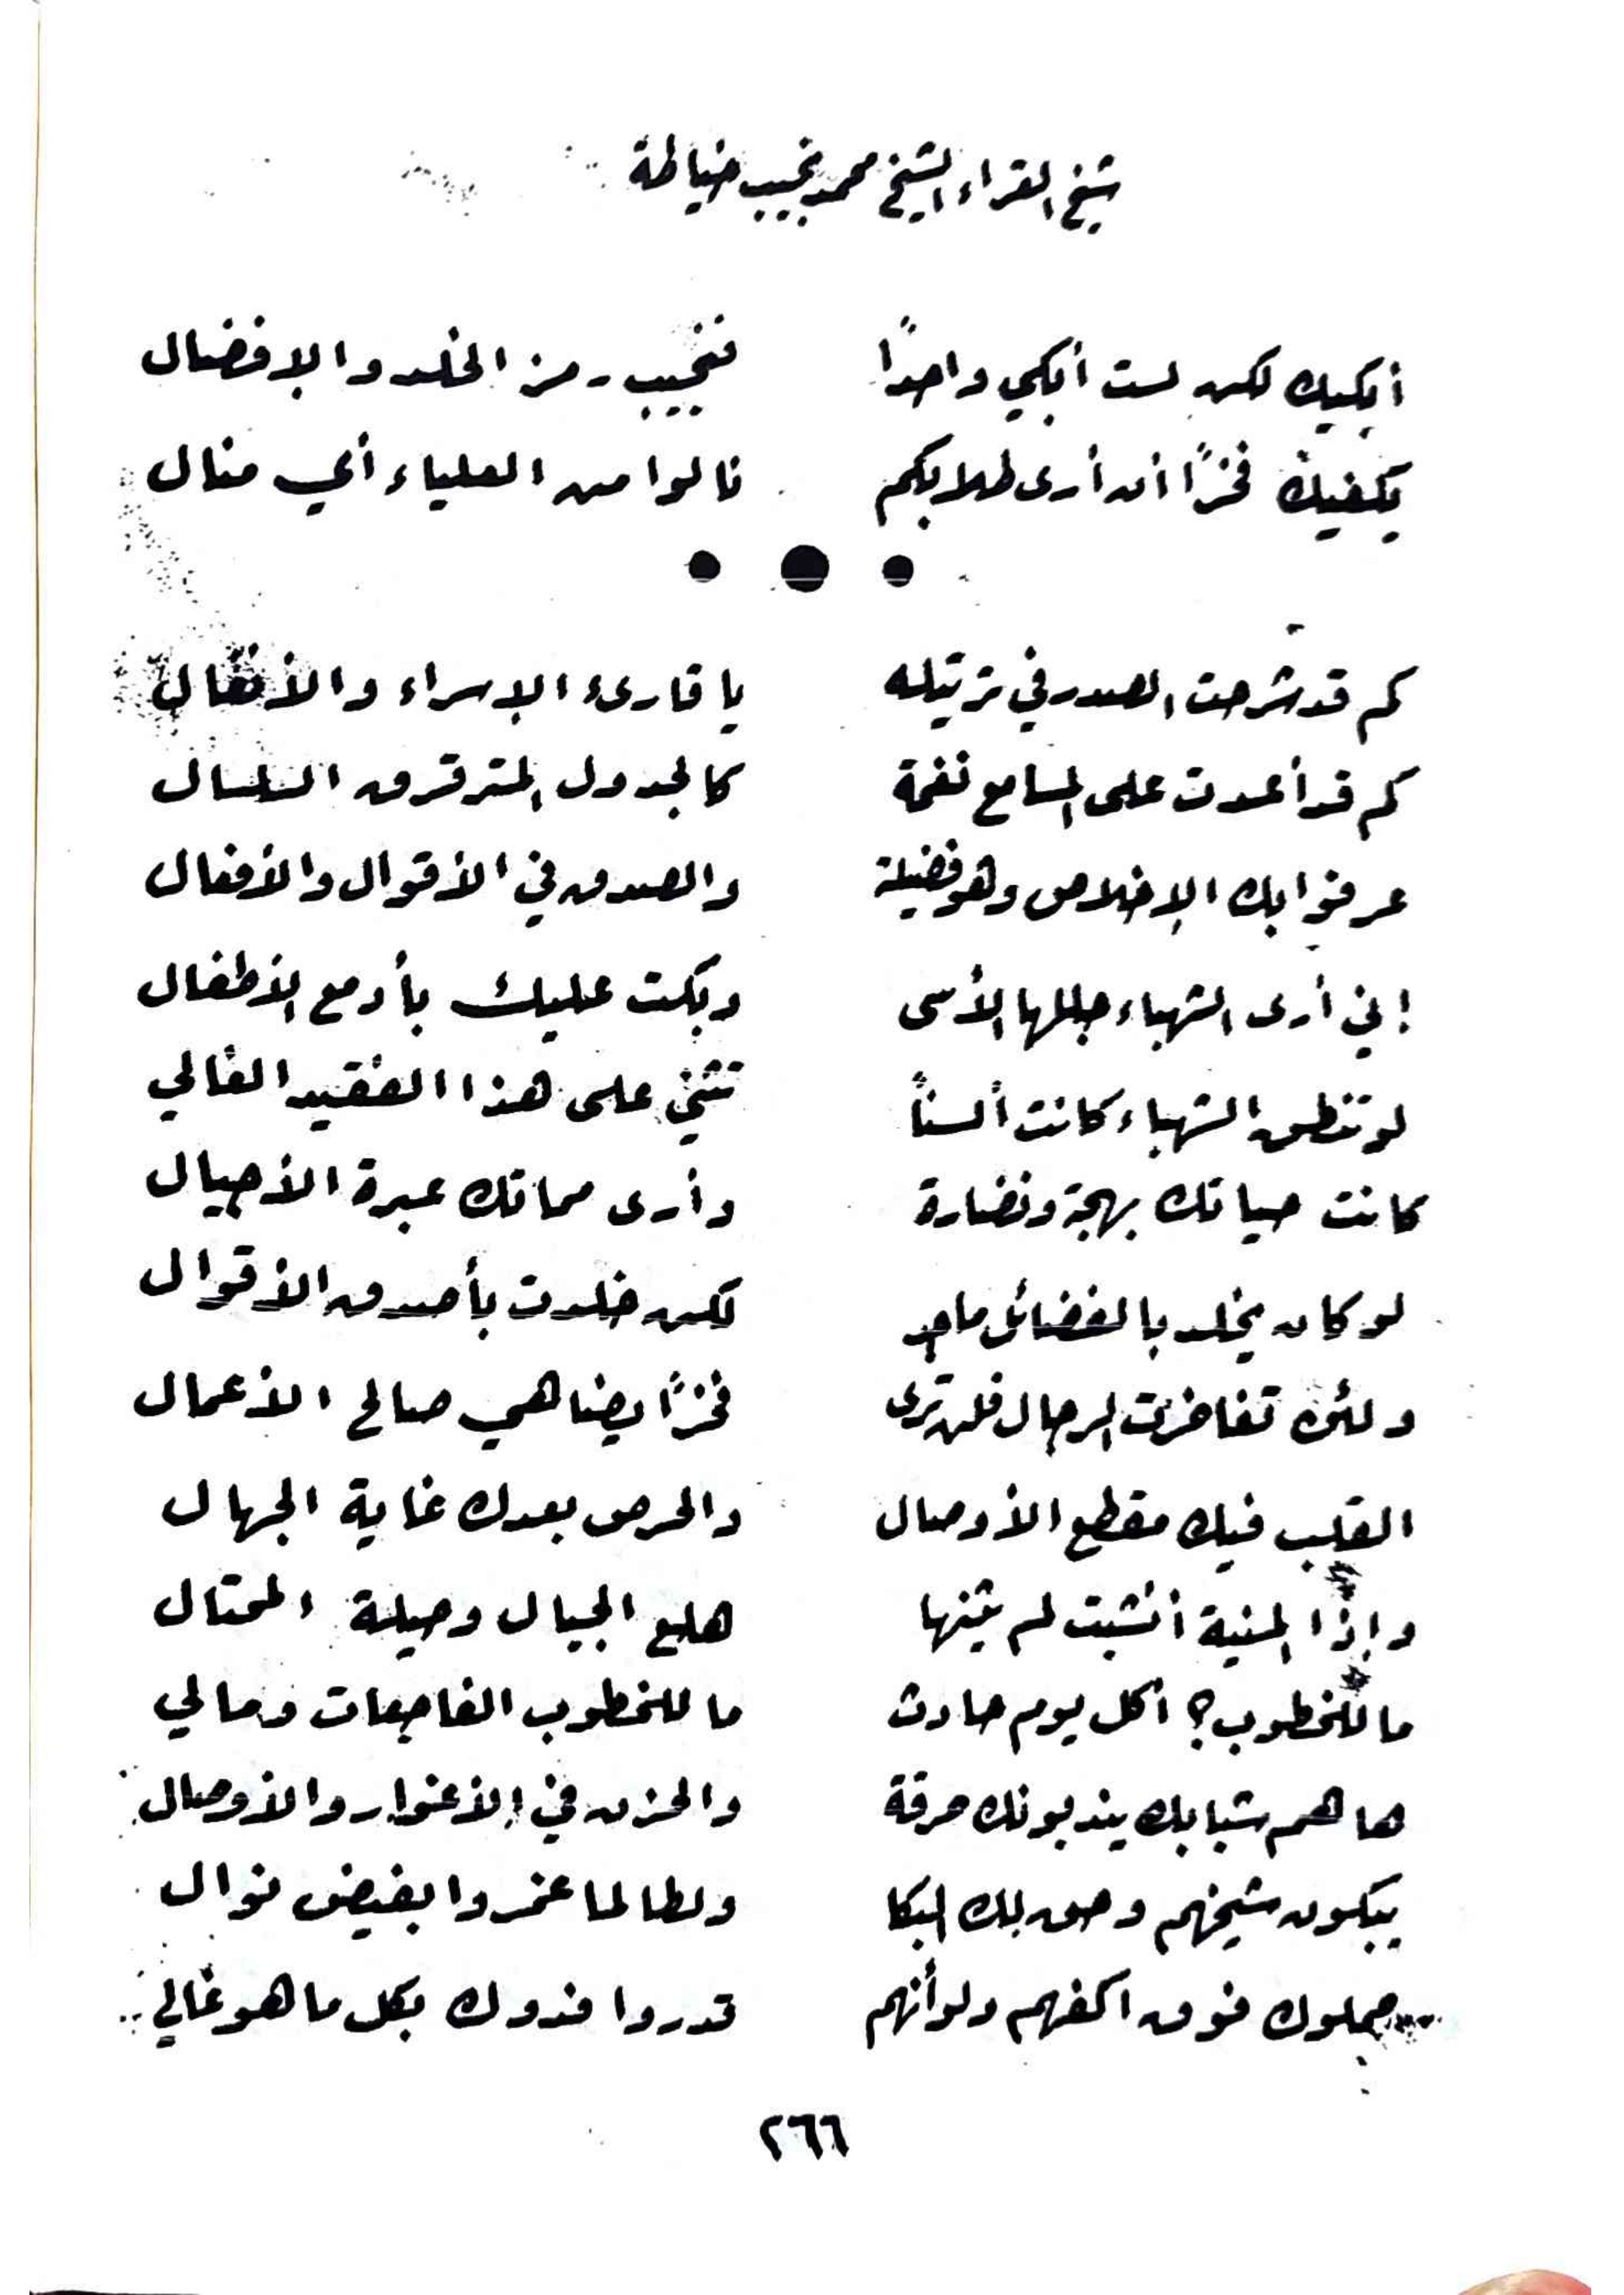 شيخ القراء الشيخ محمد نجيب خياطة
أبكيك لكن لست أبكي واحدًا فنجيب رمز الخلد والإفضال
يكفيك فخرًا أن أرى طلابكم نالوا من العلياء أي منال
كم قد شرحت الصدر في ترتيله يا قارئ الإسراء والأنفال
كم قد أعدت على المسامع نغمة كالجدول المترقرق السلسال
عرفوا بك الإخلاص وهو فضيلة والصدق في الأقوال والأفعال
إني أرى الشهباء جللها الأسى وبكت عليك بأدمع الأطفال
لو تنطق الشهباء كانت ألسناً تثني على هذا الفقيد الغالي
كانت حياتك بهجة ونضارة وأرى مماتك عبرة الأجيال
لو كان يخلد بالفضائل ماجد لكن خلدت بأصدق الأقوال
ولئن تفاخرت الرجال فلن ترى فخرًا يضاهي صالح الأعمال
القلب فيك مقطع الأوصال والحرص بعدك غاية الجهال
وإذا المنية أنشبت لم يثنها هلع الجبال وحيلة المحتال
ما للخطوب؟ أكل يوم حادث ما للخطوب الفاجعات ومالي
ها هم شبابك يندبونك حرقة والحزن في الأغوار والأوصال
يبكون شيخهم وحق لك البكا ولطالما غمروا بفيض نوال
حملوك فوق اكفهم ولو أنهم قدروا فدوك بكل ما هو غالي
٢٦٦